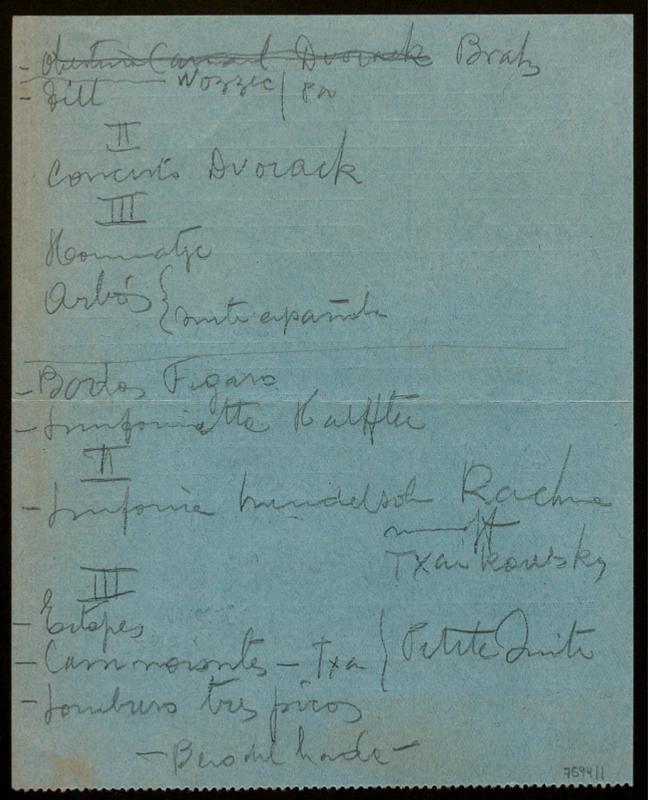 - Obertura Carnaval Dvorack Brahs
- Till Wozzec / Pa
II
Concierto Dvorack
III
Homenatje
Arbós { suite española
- Bodas Figaro
- Sinfonietta Halffter
II
- Sinfonia Mendelsoh Rachma
noff
Txaikowsky
III
- Estapes
- Txa } Petite Suite
- Sombrero tres picos
7594/1